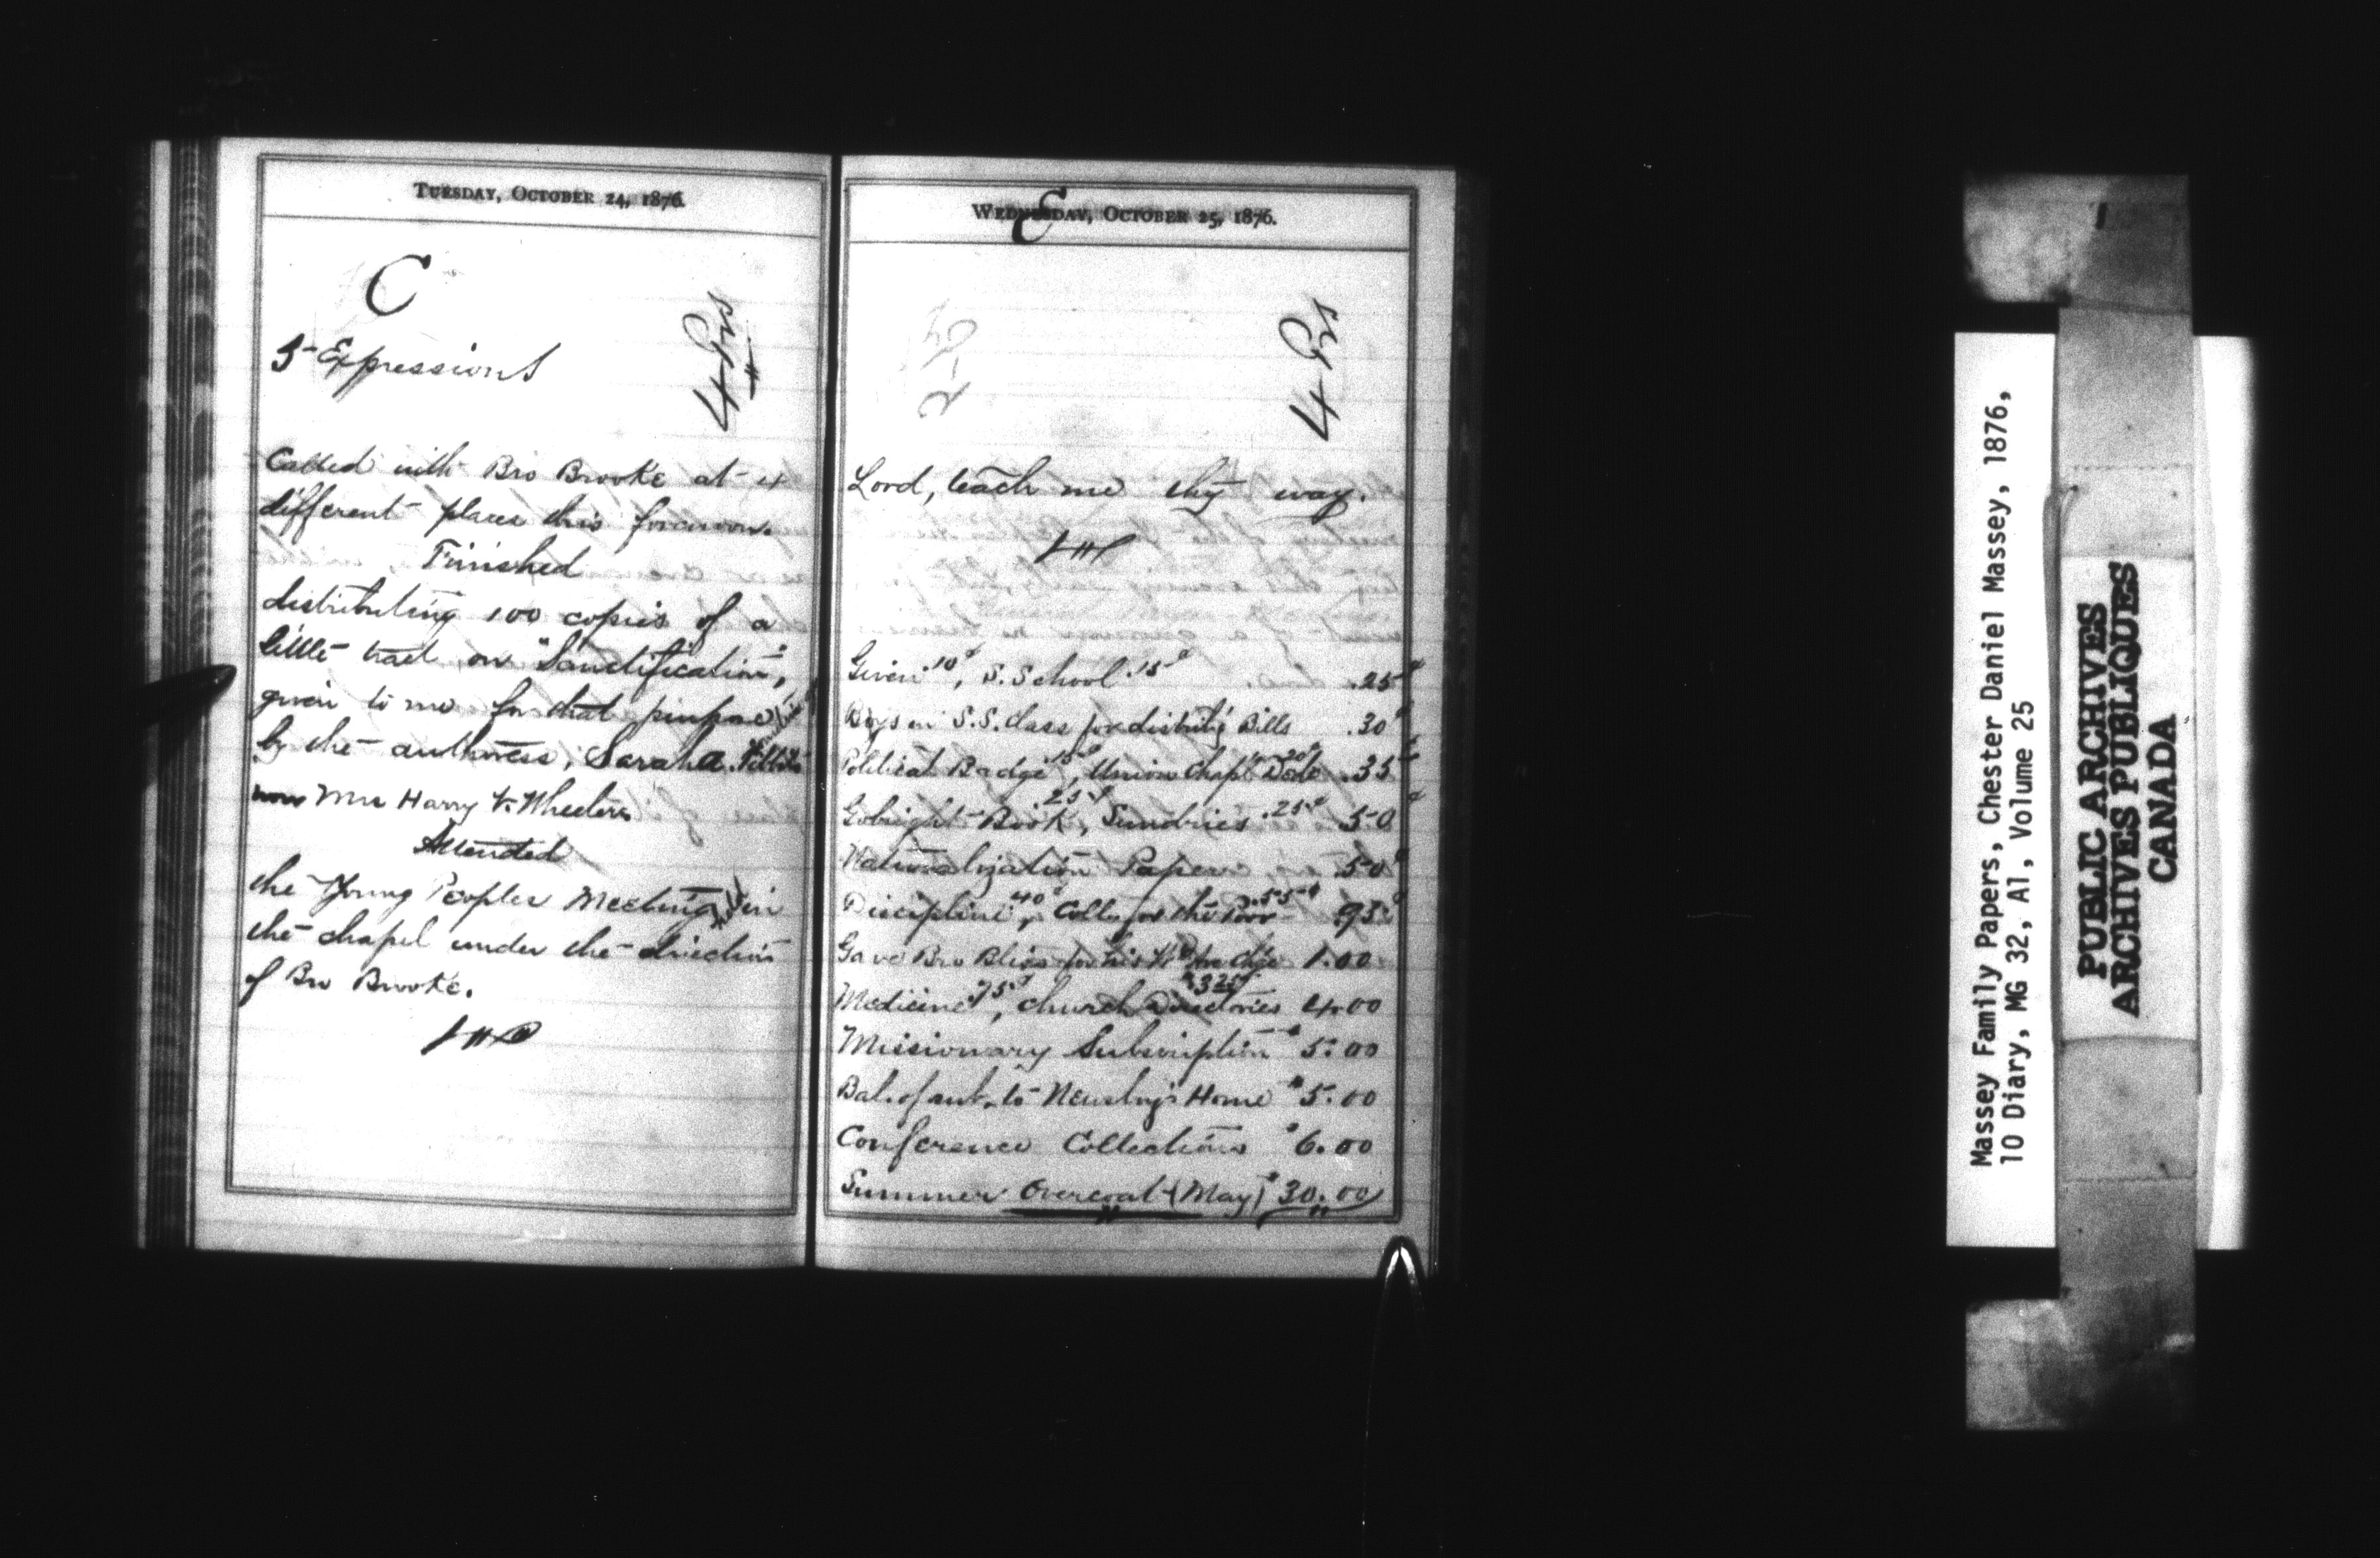 TUESDAY, OCTOBER 24, 1876.
C
5 Expressions
4 Prs
Called with Bro Brooke at 4
different places this forenoon.
Finished
distributing 100 copies of a
little tract on "Sanctification",
given to me for that purpose
by the authoress, Sarah A.
now Mrs Harry V. Wheeler.
Attended
the Young Peoples Meeting in
the chapel under the direction
of Bro Brooke.
WEDNESDAY, OCTOBER 25, 1876.
C
4 Prs
Lord, teach me thy way.
Given .10¢, S. School .15¢ .25¢
Boys in S.S. class for distribg Bills .30¢
Political Badge .15¢, Union Chapl .20¢ .35¢
Gobright Book .25¢, Sundries .25¢ .50¢
Naturalization Paper .50¢
Discipline .40¢, Colln for the Poor .55¢ .95¢
Gave Bro Bliss for his 1.00
Medicine .75¢, Church Directories $3.25 4.00
Missionary Subscription $5.00
Bal. of amt. to Newsboy's Home $5.00
Conference Collections $6.00
Summer Overcoat (May) $30.00
Massey Family Papers, Chester Daniel Massey, 1876,
10 Diary, MG 32, A1, Volume 25
PUBLIC ARCHIVES
ARCHIVES PUBLIQUES
CANADA